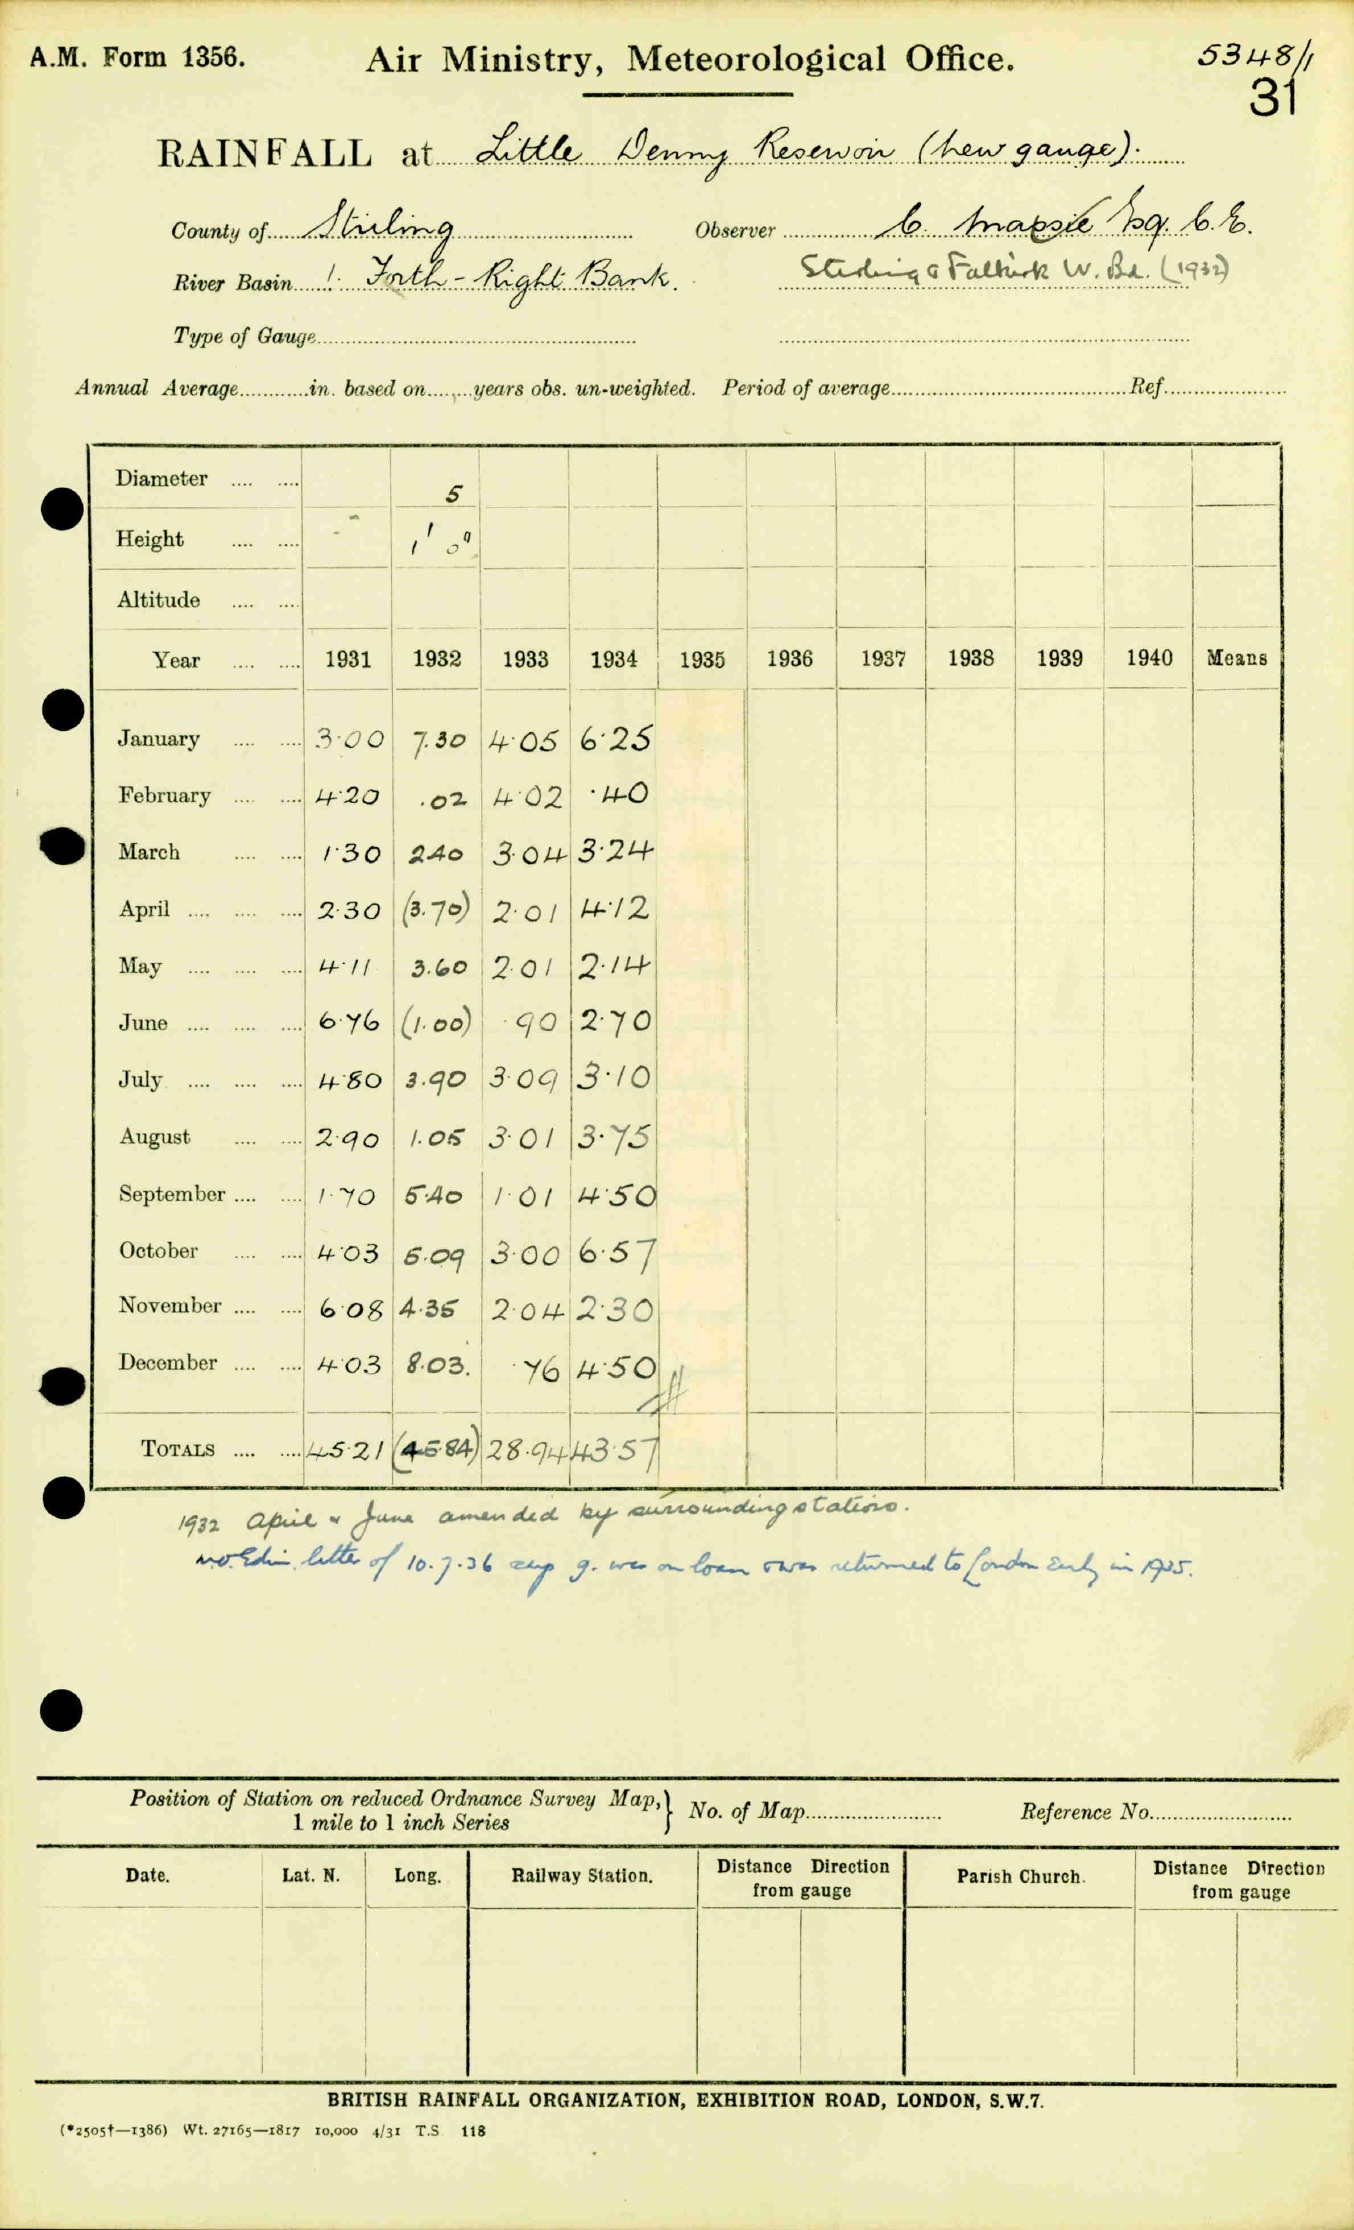 A.M. Form 1356.
Air Ministry, Meteorological Office.
5348/1
31
RAINFALL at Little Denny Reservoir (new gauge).
County of Stirling
Observer C. Massie Esq. C.E.
River Basin Forth - Right Bank.
Stirling & Falkirk W. Bd. (1932)
Type of Gauge
Annual Average in. based on years obs. un-weighted. Period of average Ref.
Diameter 5
Height 1' 0"
Altitude
Year 1931 1932 1933 1934 1935 1936 1937 1938 1939 1940 Means
January 3·00 7.30 4·05 6·25
February 4·20 .02 4·02 ·40
March 1·30 2.40 3·04 3·24
April 2·30 (3.70) 2·01 4·12
May 4·11 3.60 2·01 2·14
June 6·76 (1.00) ·90 2·70
July 4·80 3.90 3·09 3·10
August 2·90 1.05 3·01 3·75
September 1·70 5.40 1·01 4·50
October 4·03 5.09 3·00 6·57
November 6·08 4.35 2·04 2·30
December 4·03 8.03. ·76 4·50
TOTALS 45·21 (45.84) 28·94 43·57
1932 April & June amended by surrounding stations.
M.O. Edin. letter of 10.7.36 says g. was on loan & was returned to London early in 1935.
Position of Station on reduced Ordnance Survey Map, } No. of Map Reference No.
1 mile to 1 inch Series
Date. Lat. N. Long. Railway Station. Distance Direction from gauge Parish Church. Distance Direction from gauge
BRITISH RAINFALL ORGANIZATION, EXHIBITION ROAD, LONDON, S.W.7.
(*2505†—1386) Wt. 27165—1817 10,000 4/31 T.S. 118